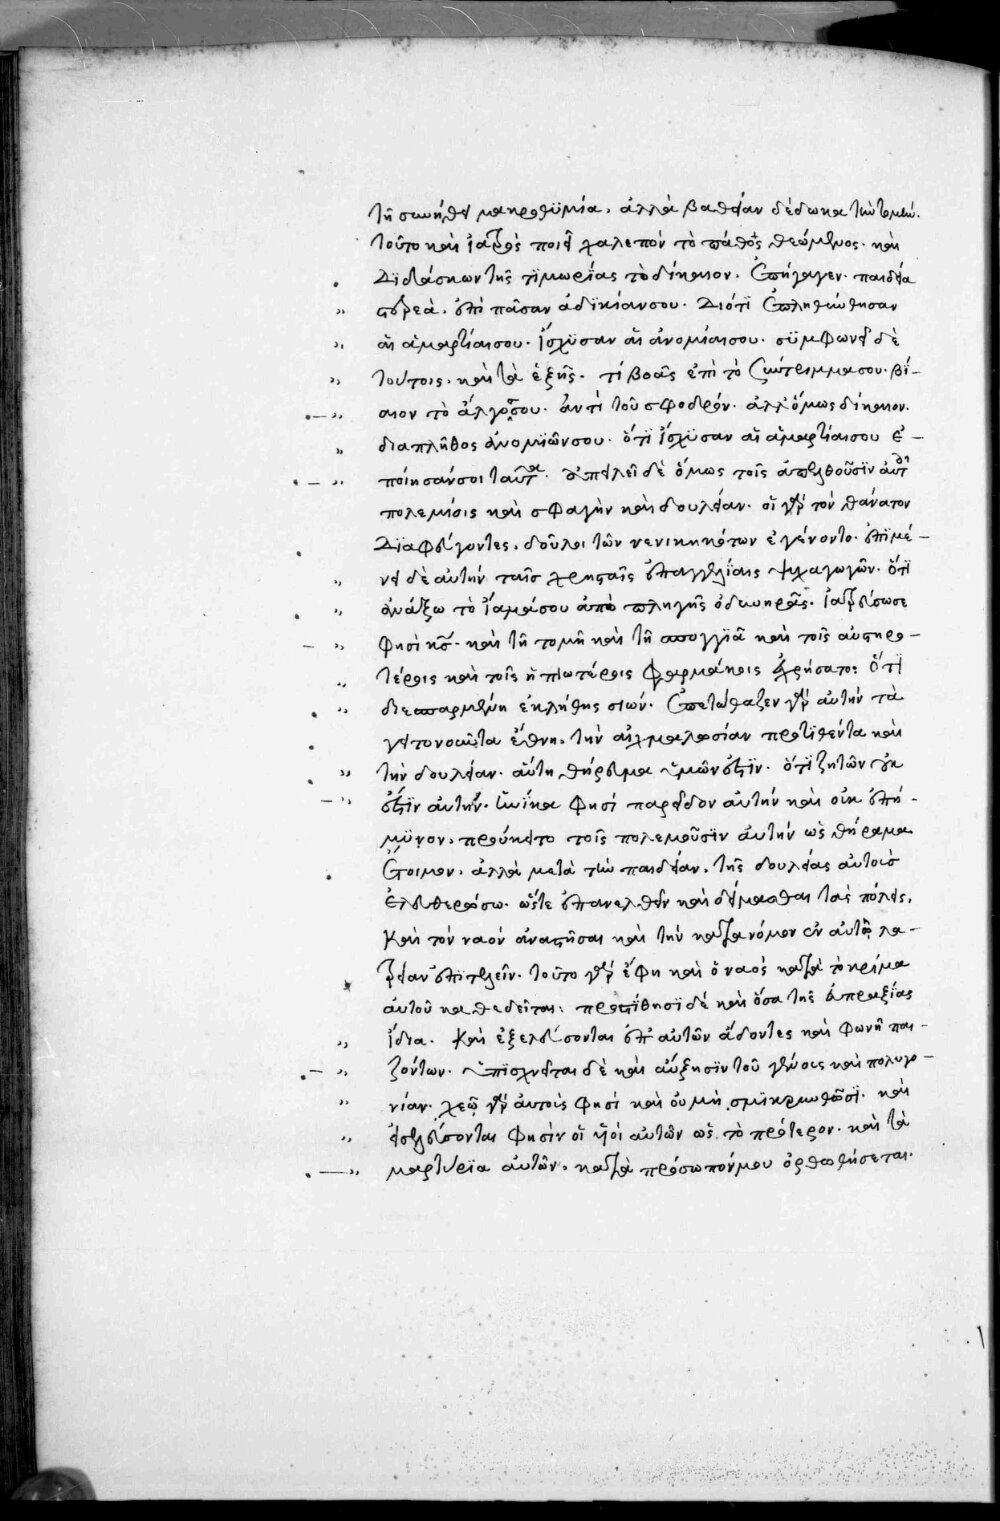 τῆ συνήθει μακροθυμία. ἀλλὰ βαθεῖαν δέδωκα τὴν τομήν.
τοῦτο καὶ ἰατρὸς ποιεῖ χαλεπὸν τὸ πάθος θεώμενος. καὶ
διδάσκων τῆς τιμωρίας τὸ δίκαιον. ἐπήγαγεν. παιδεία
στερεὰ. ἐπὶ πᾶσαν ἀδικίαν σου. διότι ἐπληθύνθησαν
αἱ ἁμαρτίαι σου. ἴσχυσαν αἱ ἀνομίαι σου. συμφωνεῖ δὲ
τούτοις. καὶ τὰ ἑξῆς. τί βοᾶς ἐπὶ τὸ σύντριμμα σου. βί-
αιον τὸ ἄλγος σου. ἀντὶ τοῦ σφοδρόν. ἀλλ' ὅμως δίκαιον.
διὰ πλῆθος ἀνομιῶν σου. ὅτι ἴσχυσαν αἱ ἁμαρτίαι σου ἐ-
ποίησάν σοι ταῦτα. ἀπειλεῖ δὲ ὅμως τοῖς ἐπελθοῦσιν αὐτῆ
πολεμίοις καὶ σφαγὴν καὶ δουλείαν. οἱ γὰρ τὸν θάνατον
διαφυγόντες. δοῦλοι τῶν νενικηκότων ἐγένοντο. ἐπιμέ-
νει δὲ αὐτὴν ταῖς χρησταῖς ἐπαγγελίαις ψυχαγωγῶν. ὅτι
ἀνάξω τὸ ἴαμά σου ἀπὸ πληγῆς ὀδυνηρᾶς. ἰατρεύσω σε
φησὶ κς. καὶ τῆ τομῆ καὶ τῆ σπογγιᾶ καὶ τοῖς αὐστηρο-
τέροις καὶ τοῖς ἠπιωτέροις φαρμάκοις χρήσατο: ὅτι
διεσπαρμένη ἐκλήθης σιών. ἐπετώθαζεν γὰρ αὐτὴν τὰ
γειτονοῦντα ἔθνη. τὴν αἰχμαλωσίαν προτιθέντα καὶ
τὴν δουλείαν. αὕτη θήρευμα ὑμῶν ἐστιν. ὅτι ζητῶν οὐκ
ἔστιν αὐτήν. ἡνίκα φησὶ παρεῖδον αὐτὴν καὶ οὐκ ἐπή-
μυνον. προύκειτο τοῖς πολεμοῦσιν αὐτὴν ὡς θήραμα
ἕτοιμον. ἀλλὰ μετὰ τὴν παιδείαν. τῆς δουλείας αὐτοὺς
ἐλευθερώσω. ὥστε ἐπανελθεῖν καὶ δείμασθαι τὰς πόλεις.
καὶ τὸν ναὸν ἀναστῆσαι καὶ τὴν κατὰ νόμον ἐν αὐτῶ λα-
τρείαν ἐπιτελεῖν. τοῦτο γὰρ ἔφη καὶ ὁ ναὸς κατὰ τὸ κρίμα
αὐτοῦ καθεδεῖται: προστίθησι δὲ καὶ ὅσα τῆς εὐπραξίας
ἴδια. καὶ ἐξελεύσονται ἀπ' αὐτῶν ἄδοντες καὶ φωνὴ παι-
ζόντων. ὑπισχνεῖται δὲ καὶ αὔξησιν τοῦ γένους καὶ πολυγο-
νίαν. χεῶ γὰρ αὐτοὺς φησὶ καὶ οὐ μὴ σμικρυνθῶσι. καὶ
εἰσελεύσονται φησὶν οἱ υἱοὶ αὐτῶν ὡς τὸ πρότερον. καὶ τὰ
μαρτύρια αὐτῶν. κατὰ πρόσωπόν μου ὀρθωθήσεται.